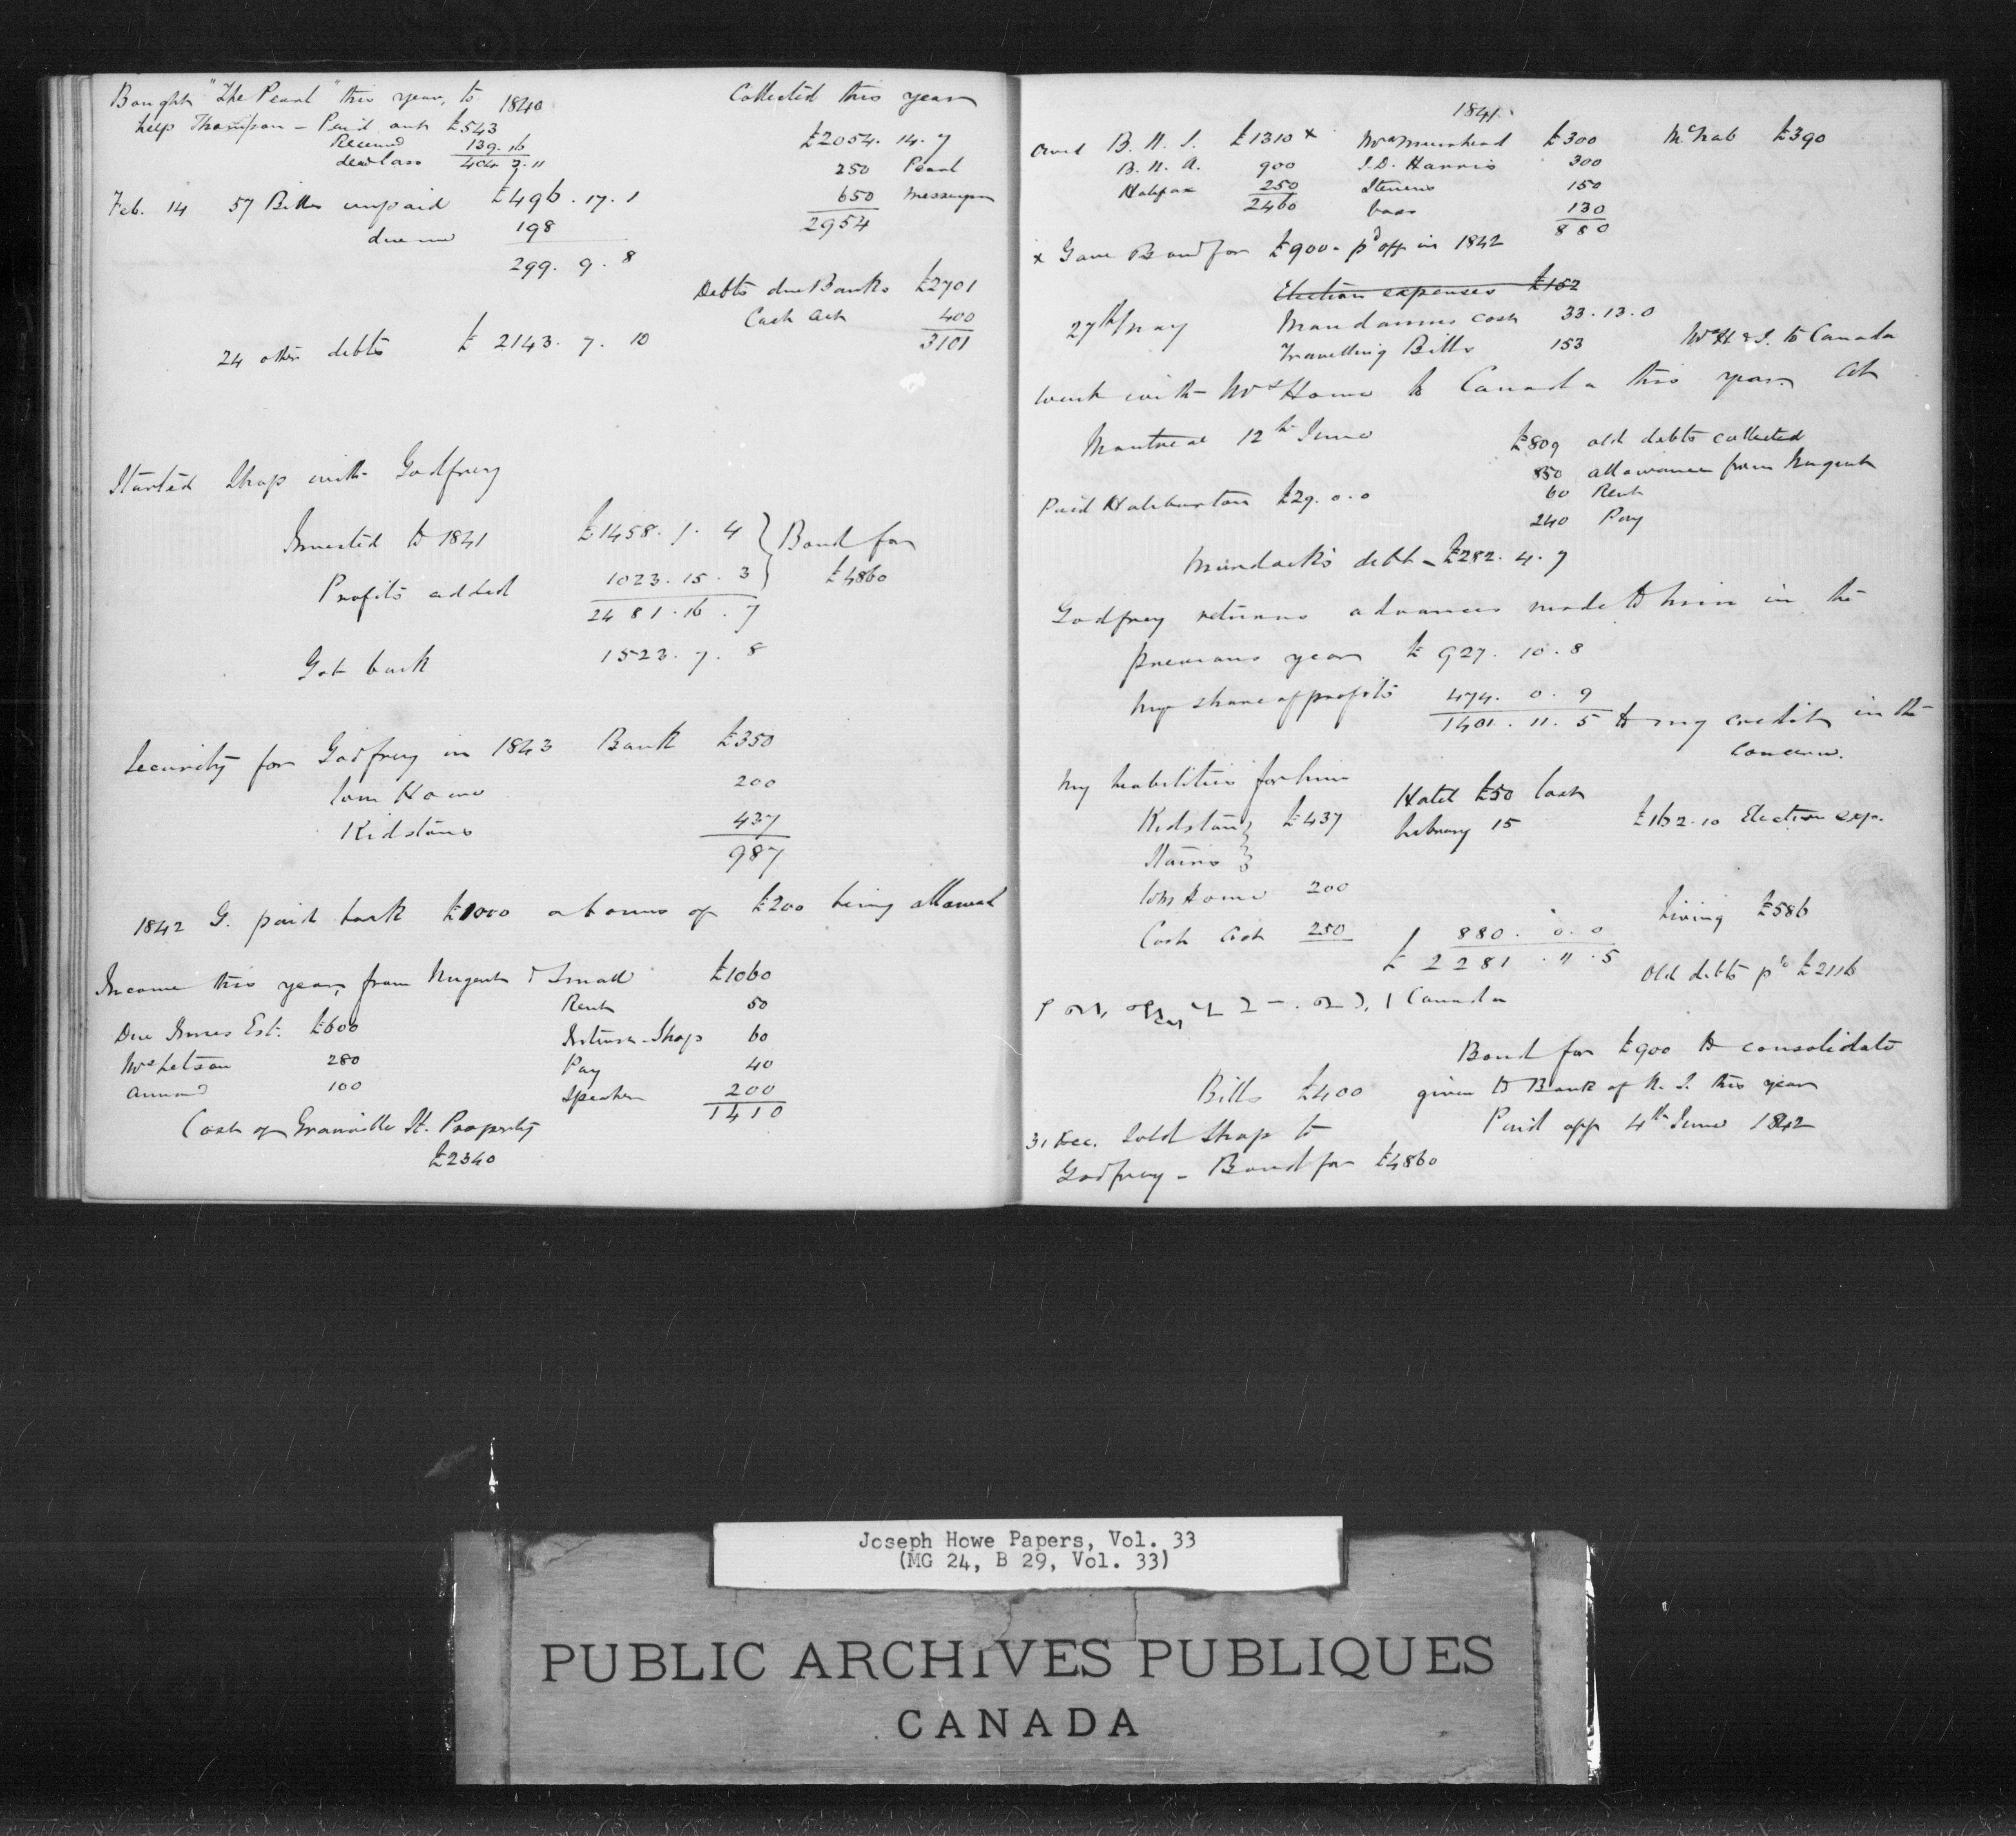 Bought "The Pearl" this year, to 1840
help Thompson - Paid out £543
Received 139.16
dead loss 404 7.11
Feb. 14 57 Bills unpaid £496.17.1
due me 198
299.9.8
24 other debts £2143.7.10
Collected this year
£2054.14.7
250 Pearl
650 Messenger
2954
Debts due Banks £2701
Cash act 400
3101
Started Shop with Godfrey
Invested to 1841 £1458.1.4 } Bond for
Profits added 1023.15.3 } £4860
2481.16.7
Got back 1523.7.8
Security for Godfrey in 1843 Bank £350
Howe 200
Kidstons 437
987
1842 G. paid back £1000 a bonus of £200 being allowed
Income this year, from Nugent & Small £1060
Rent 50
Due Innes Est. £600 Shop 60
Mrs Letson 280 Pay 40
Annand 100 Speaker 200
1410
Cost of Granville St. Property
£2340
1841.
Owed B. N. S. £1310 x Mrs Muirhead £300 McNab £390
B. N. A. 900 J.D. Harris 300
Halifax 250 Stevens 150
2460 130
880
x Gave Bond for £900 - pd off in 1842
Election expenses £162
27th May Mandamus cost 33.13.0
Travelling Bills 153 Mrs H & I. to Canada
Went with Mrs Howe to Canada this year. At
Montreal 12th June £809 old debts collected
850 allowance from Nugent
Paid Haliburton £29.0.0 60 Rent
240 Pay
Murdoch's debt - £282.4.7
Godfrey returns advances made to him in the
previous year £927.10.8
My share of profits 474.0.9
1401.11.5 to my credit in the
concern.
My liabilities for him
Kidstons } £437 Hotel £50 last
Stairs } Library 15 £162.10 Election exp.
Howe 200
Cash act 250 880.0.0 Living £586
£2281.11.5 Old debts pd £2116
Canada
Bond for £900 to consolidate
Bills £400 given to Bank of N. S. this year
Paid off 4th June 1842
31 Dec. Sold Shop to
Godfrey - Bond for £4860
Joseph Howe Papers, Vol. 33
(MG 24, B 29, Vol. 33)
PUBLIC ARCHIVES PUBLIQUES
CANADA